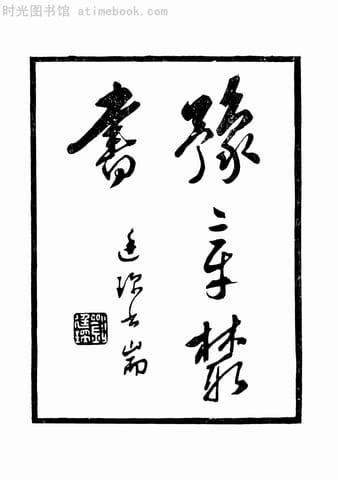 时光图书馆 atimebook.com
豫章叢
書
廷琛書耑